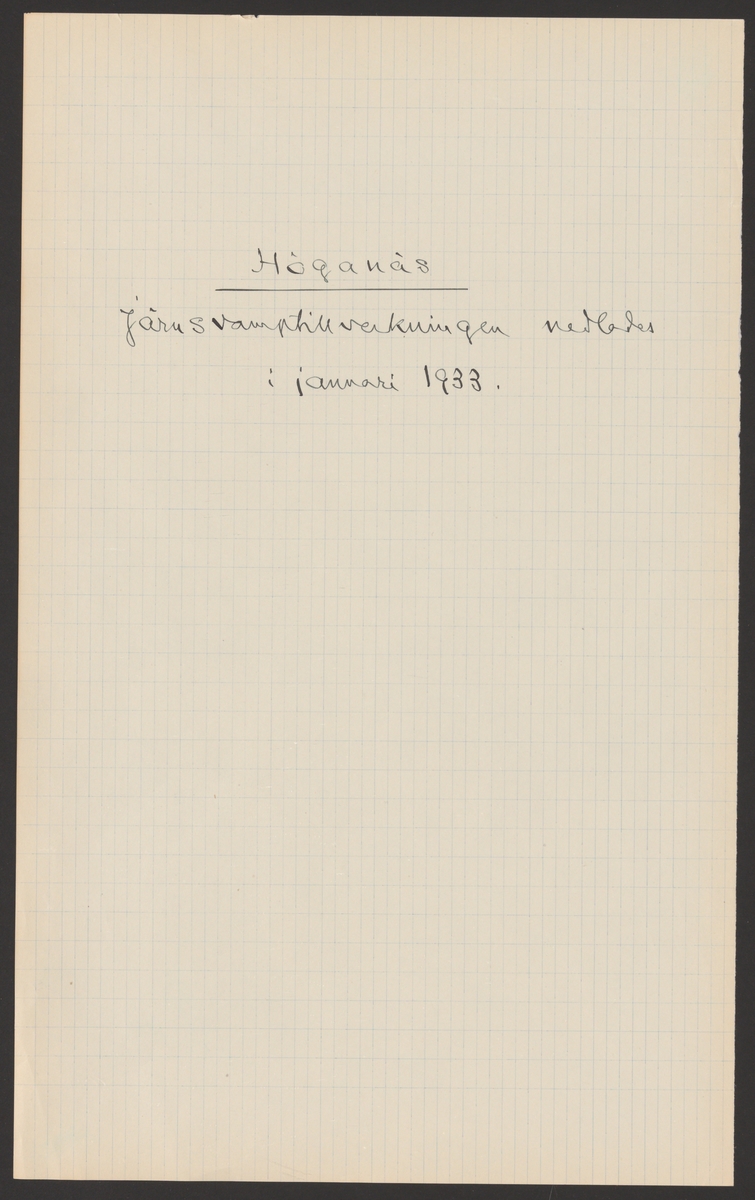 Höganäs
Järnsvamptillverkningen nedlades
i januari 1933.